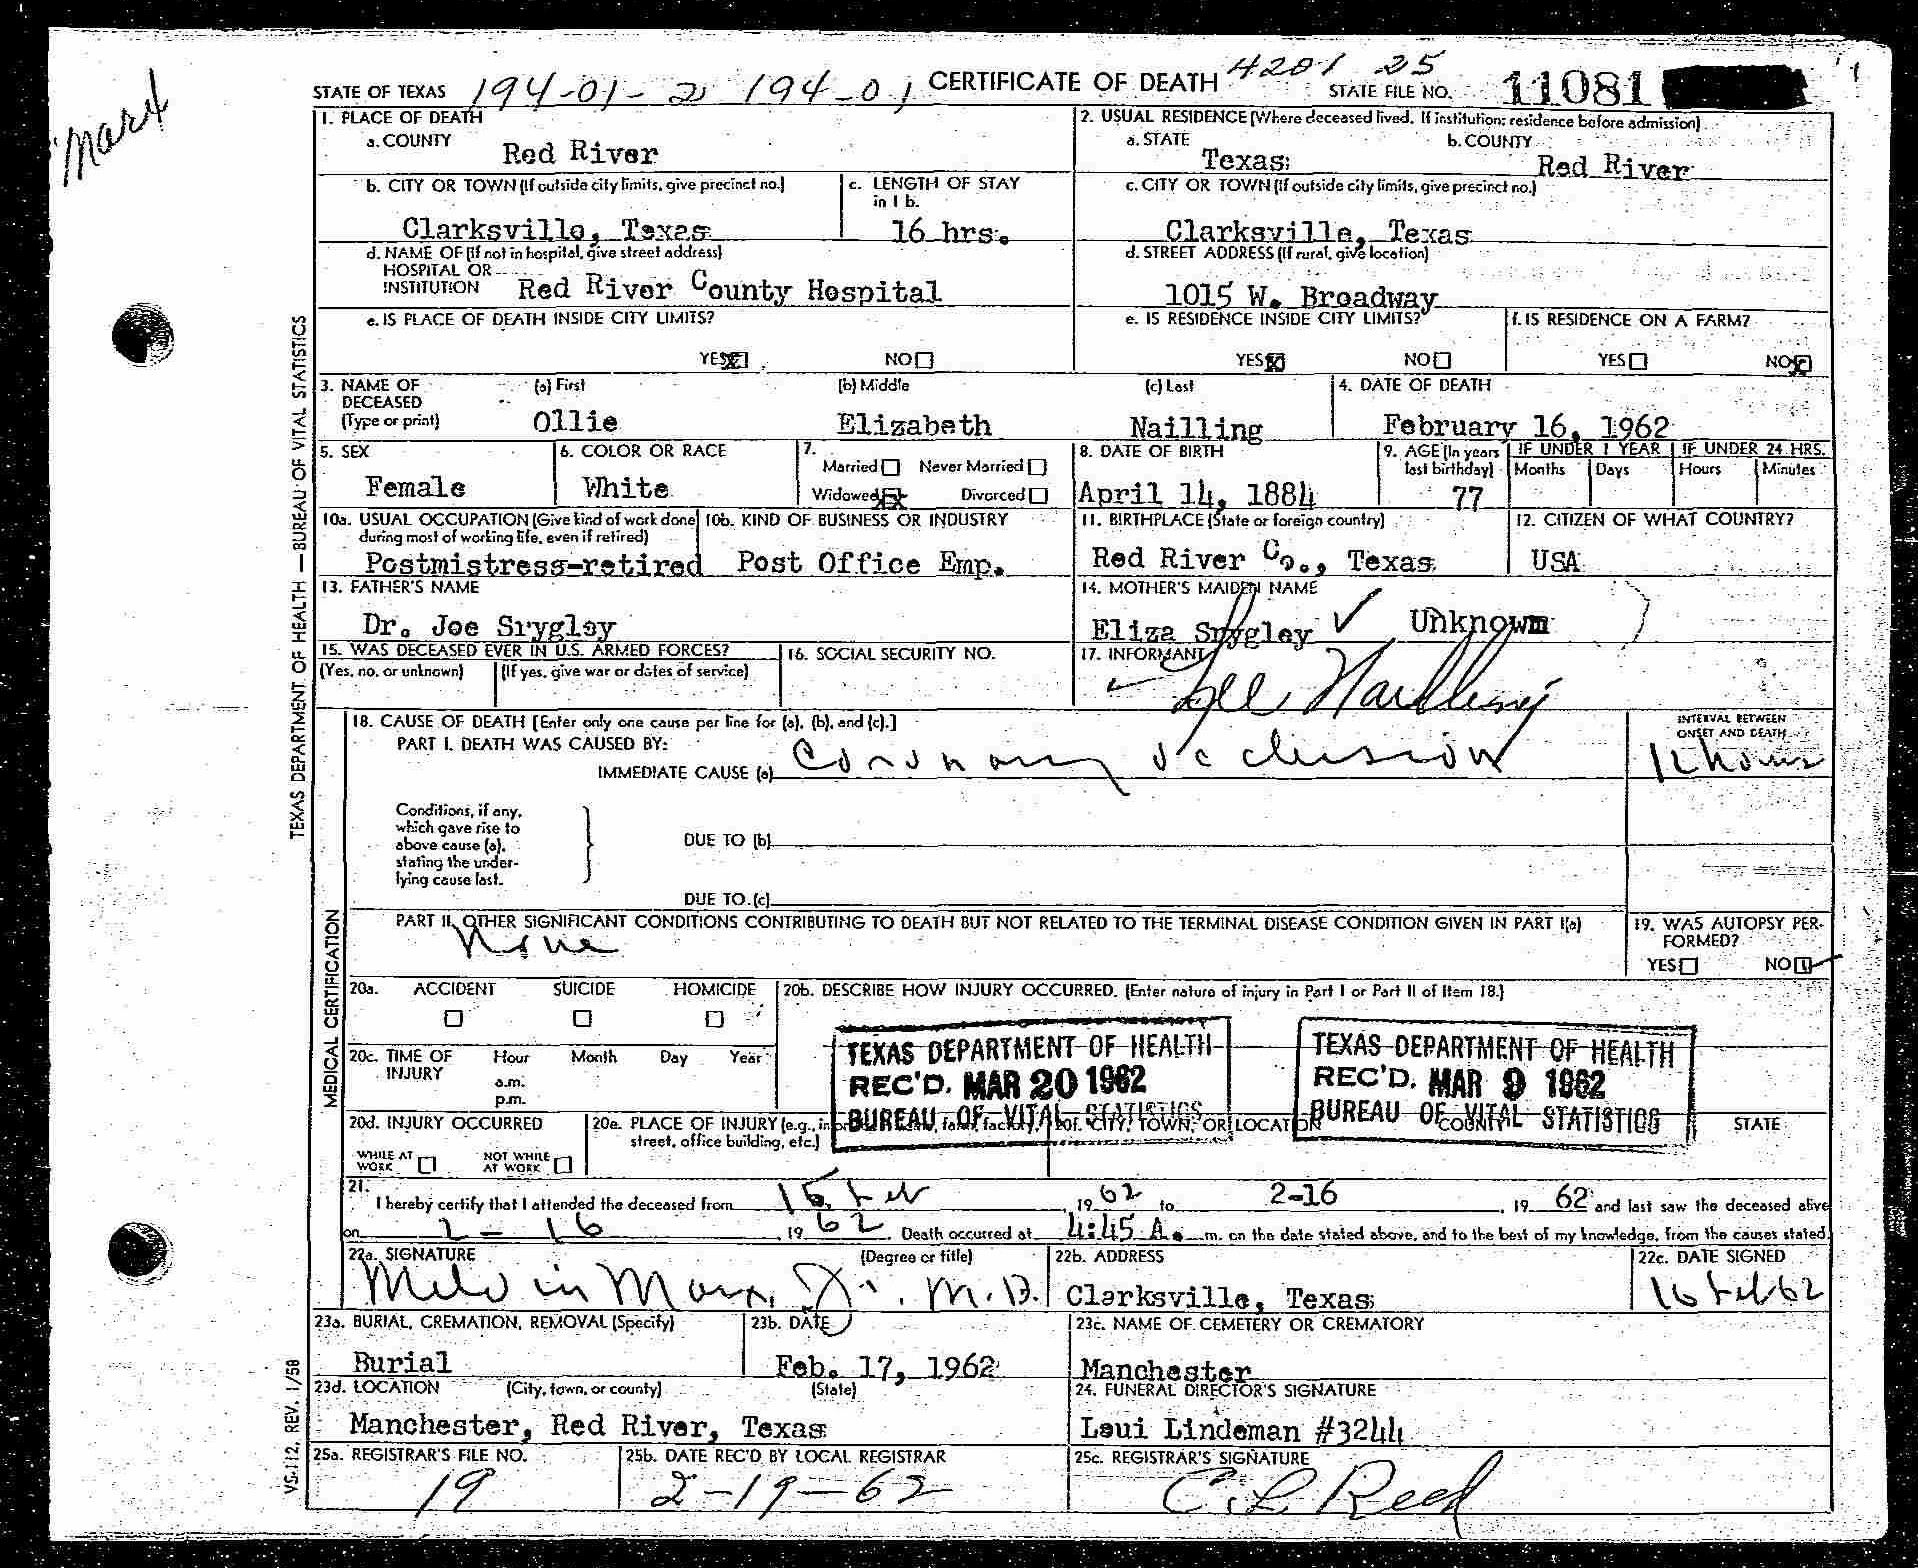 Marx
STATE OF TEXAS 194-01-2 194-01 CERTIFICATE OF DEATH 4201 25 STATE FILE NO. 11081
1. PLACE OF DEATH
a. COUNTY Red River
2. USUAL RESIDENCE (Where deceased lived. If institution: residence before admission)
a. STATE Texas b. COUNTY Red River
b. CITY OR TOWN (If outside city limits, give precinct no.) Clarksville, Texas
c. LENGTH OF STAY in 1 b. 16 hrs.
c. CITY OR TOWN (If outside city limits, give precinct no.) Clarksville, Texas
d. NAME OF (If not in hospital, give street address) HOSPITAL OR INSTITUTION Red River County Hospital
d. STREET ADDRESS (If rural, give location) 1015 W. Broadway
e. IS PLACE OF DEATH INSIDE CITY LIMITS? YES NO
e. IS RESIDENCE INSIDE CITY LIMITS? YES NO
f. IS RESIDENCE ON A FARM? YES NO
3. NAME OF DECEASED (Type or print) (a) First Ollie (b) Middle Elizabeth (c) Last Nailling
4. DATE OF DEATH February 16, 1962
5. SEX Female
6. COLOR OR RACE White
7. Married Never Married Widowed Divorced
8. DATE OF BIRTH April 14, 1884
9. AGE (In years last birthday) 77 IF UNDER 1 YEAR Months Days IF UNDER 24 HRS. Hours Minutes
10a. USUAL OCCUPATION (Give kind of work done during most of working life, even if retired) Postmistress-retired
10b. KIND OF BUSINESS OR INDUSTRY Post Office Emp.
11. BIRTHPLACE (State or foreign country) Red River Co., Texas
12. CITIZEN OF WHAT COUNTRY? USA
13. FATHER'S NAME Dr. Joe Srygley
14. MOTHER'S MAIDEN NAME Eliza Srygley Unknown
15. WAS DECEASED EVER IN U.S. ARMED FORCES? (Yes, no, or unknown) (If yes, give war or dates of service)
16. SOCIAL SECURITY NO.
17. INFORMANT Nailling
18. CAUSE OF DEATH [Enter only one cause per line for (a), (b), and (c).]
PART I. DEATH WAS CAUSED BY:
IMMEDIATE CAUSE (a) Coronary occlusion
INTERVAL BETWEEN ONSET AND DEATH 12 hours
Conditions, if any, which gave rise to above cause (a), stating the underlying cause last.
DUE TO (b)
DUE TO (c)
PART II. OTHER SIGNIFICANT CONDITIONS CONTRIBUTING TO DEATH BUT NOT RELATED TO THE TERMINAL DISEASE CONDITION GIVEN IN PART I(a)
None
19. WAS AUTOPSY PERFORMED? YES NO
20a. ACCIDENT SUICIDE HOMICIDE
20b. DESCRIBE HOW INJURY OCCURRED. (Enter nature of injury in Part I or Part II of Item 18.)
20c. TIME OF INJURY Hour Month Day Year a.m. p.m.
TEXAS DEPARTMENT OF HEALTH
REC'D. MAR 20 1962
BUREAU OF VITAL STATISTICS
TEXAS DEPARTMENT OF HEALTH
REC'D. MAR 9 1962
BUREAU OF VITAL STATISTICS
20d. INJURY OCCURRED WHILE AT WORK NOT WHILE AT WORK
20e. PLACE OF INJURY (e.g., in or farm, factory, street, office building, etc.)
20f. CITY, TOWN, OR LOCATION COUNTY STATE
21. I hereby certify that I attended the deceased from 15 Feb, 1962 to 2-16, 1962 and last saw the deceased alive
on 2-16, 1962. Death occurred at 4:45 A. m. on the date stated above, and to the best of my knowledge, from the causes stated.
22a. SIGNATURE (Degree or title) Melvin Marx, Jr. M.D.
22b. ADDRESS Clarksville, Texas
22c. DATE SIGNED 16 Feb 62
23a. BURIAL, CREMATION, REMOVAL (Specify) Burial
23b. DATE Feb. 17, 1962
23c. NAME OF CEMETERY OR CREMATORY Manchester
23d. LOCATION (City, town, or county) (State) Manchester, Red River, Texas
24. FUNERAL DIRECTOR'S SIGNATURE Leui Lindeman #3244
25a. REGISTRAR'S FILE NO. 19
25b. DATE REC'D BY LOCAL REGISTRAR 2-19-62
25c. REGISTRAR'S SIGNATURE C. L. Reed
TEXAS DEPARTMENT OF HEALTH — BUREAU OF VITAL STATISTICS
MEDICAL CERTIFICATION
VS-112, REV. 1/58